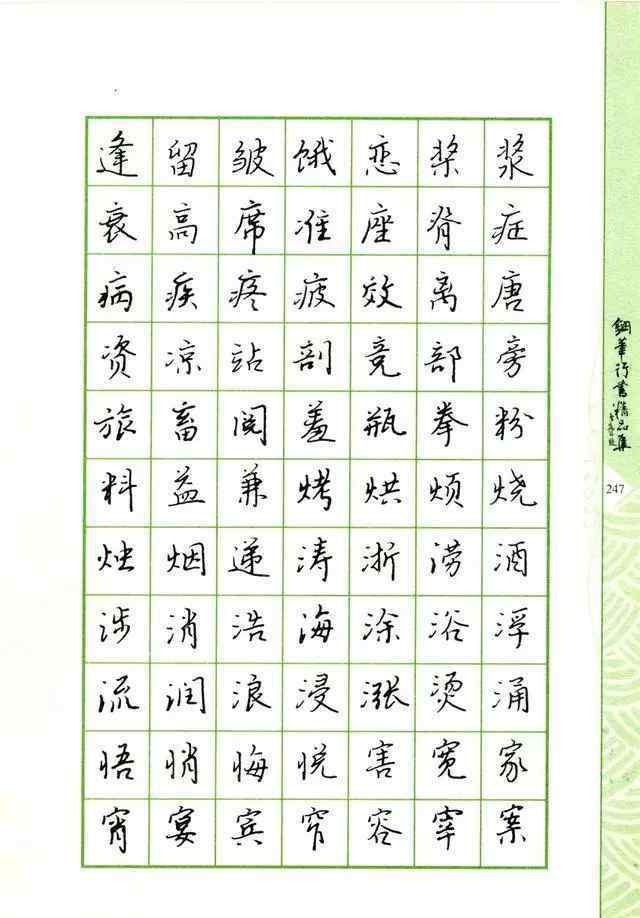 逢留皱饿恋桨浆
衰高席准座脊症
病疾疼疲效离唐
资凉站剖竞部旁
旅畜阅羞瓶拳粉
料益兼烤烘烦烧
烛烟递涛浙涝酒
涉消浩海涂浴浮
流润浪浸涨烫涌
悟悄悔悦害宽家
宵宴宾窄容宰案
鋼筆行書精品集
247